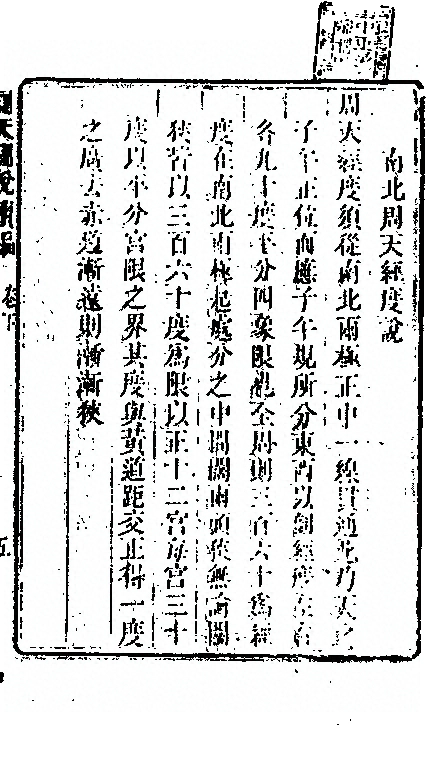 南北周天經度說
周天經度須從南北兩極正中一線貫通此乃天之
子午正位而應子午規所分東西以劃經度左右
各九十度平分四象限總全周則三百六十為經
度在南北兩極起處分之中間闊兩頭狹無論闊
狹皆以三百六十度為限以正十二宮每宮三十
度以平分宮限之界其度與黃道距交止得一度
之廣去赤道漸遠則漸漸狹
卷下
五